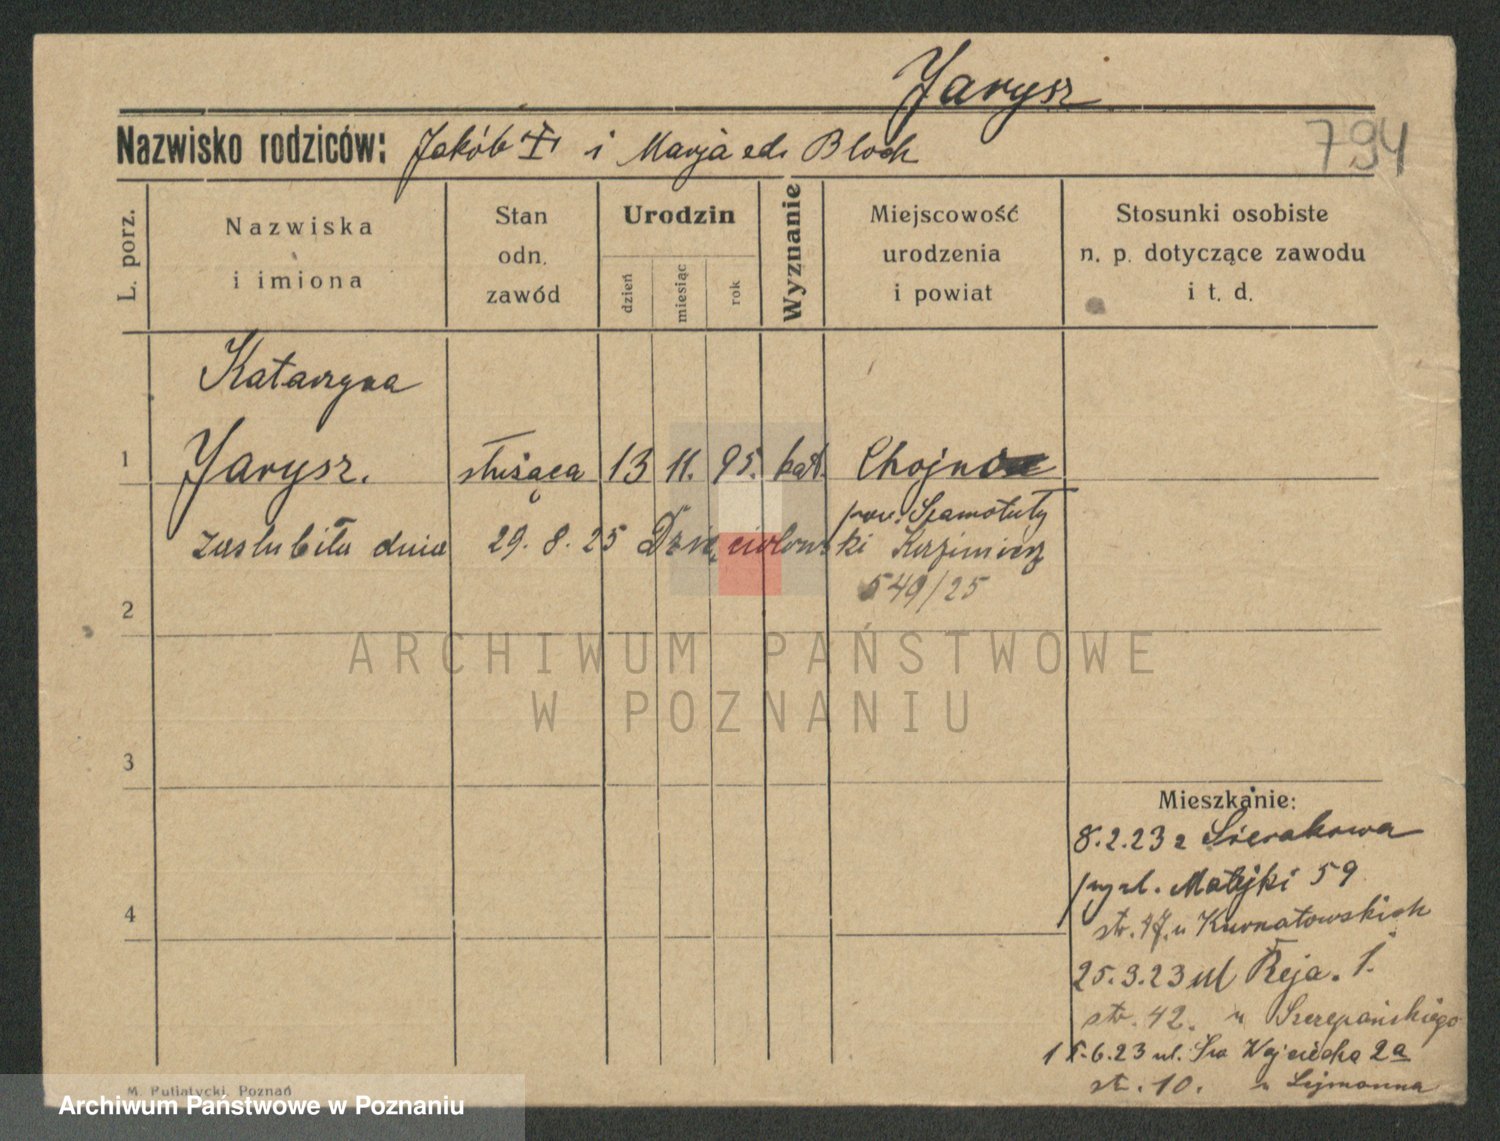 Jarysz
Nazwisko rodziców: Jakób i Marja Bloch
794
L. porz.
Nazwiska
i imiona
Stan
odn.
zawód
Urodzin
dzień
miesiąc
rok
Wyznanie
Miejscowość
urodzenia
i powiat
Stosunki osobiste
n. p. dotyczące zawodu
i t. d.
Katarzyna
1 Jarysz. służąca 13 11. 95. kat. Chojno
pow. Szamotuły
zaslubiła dnia 29. 8. 25 Dzięciolowski Kazimierz
549/25
2
3
4
ARCHIWUM PAŃSTWOWE
W POZNANIU
Mieszkanie:
8.2.23 z Sierakowa
Matejki 59
str. 47. u Kurnatowskich
25.3.23 ul Reja. 1.
str. 42. u Szczepańskiego
6.23 ul. Św Wojciecha 2a
st. 10. u
M. Putiatycki, Poznań
Archiwum Państwowe w Poznaniu